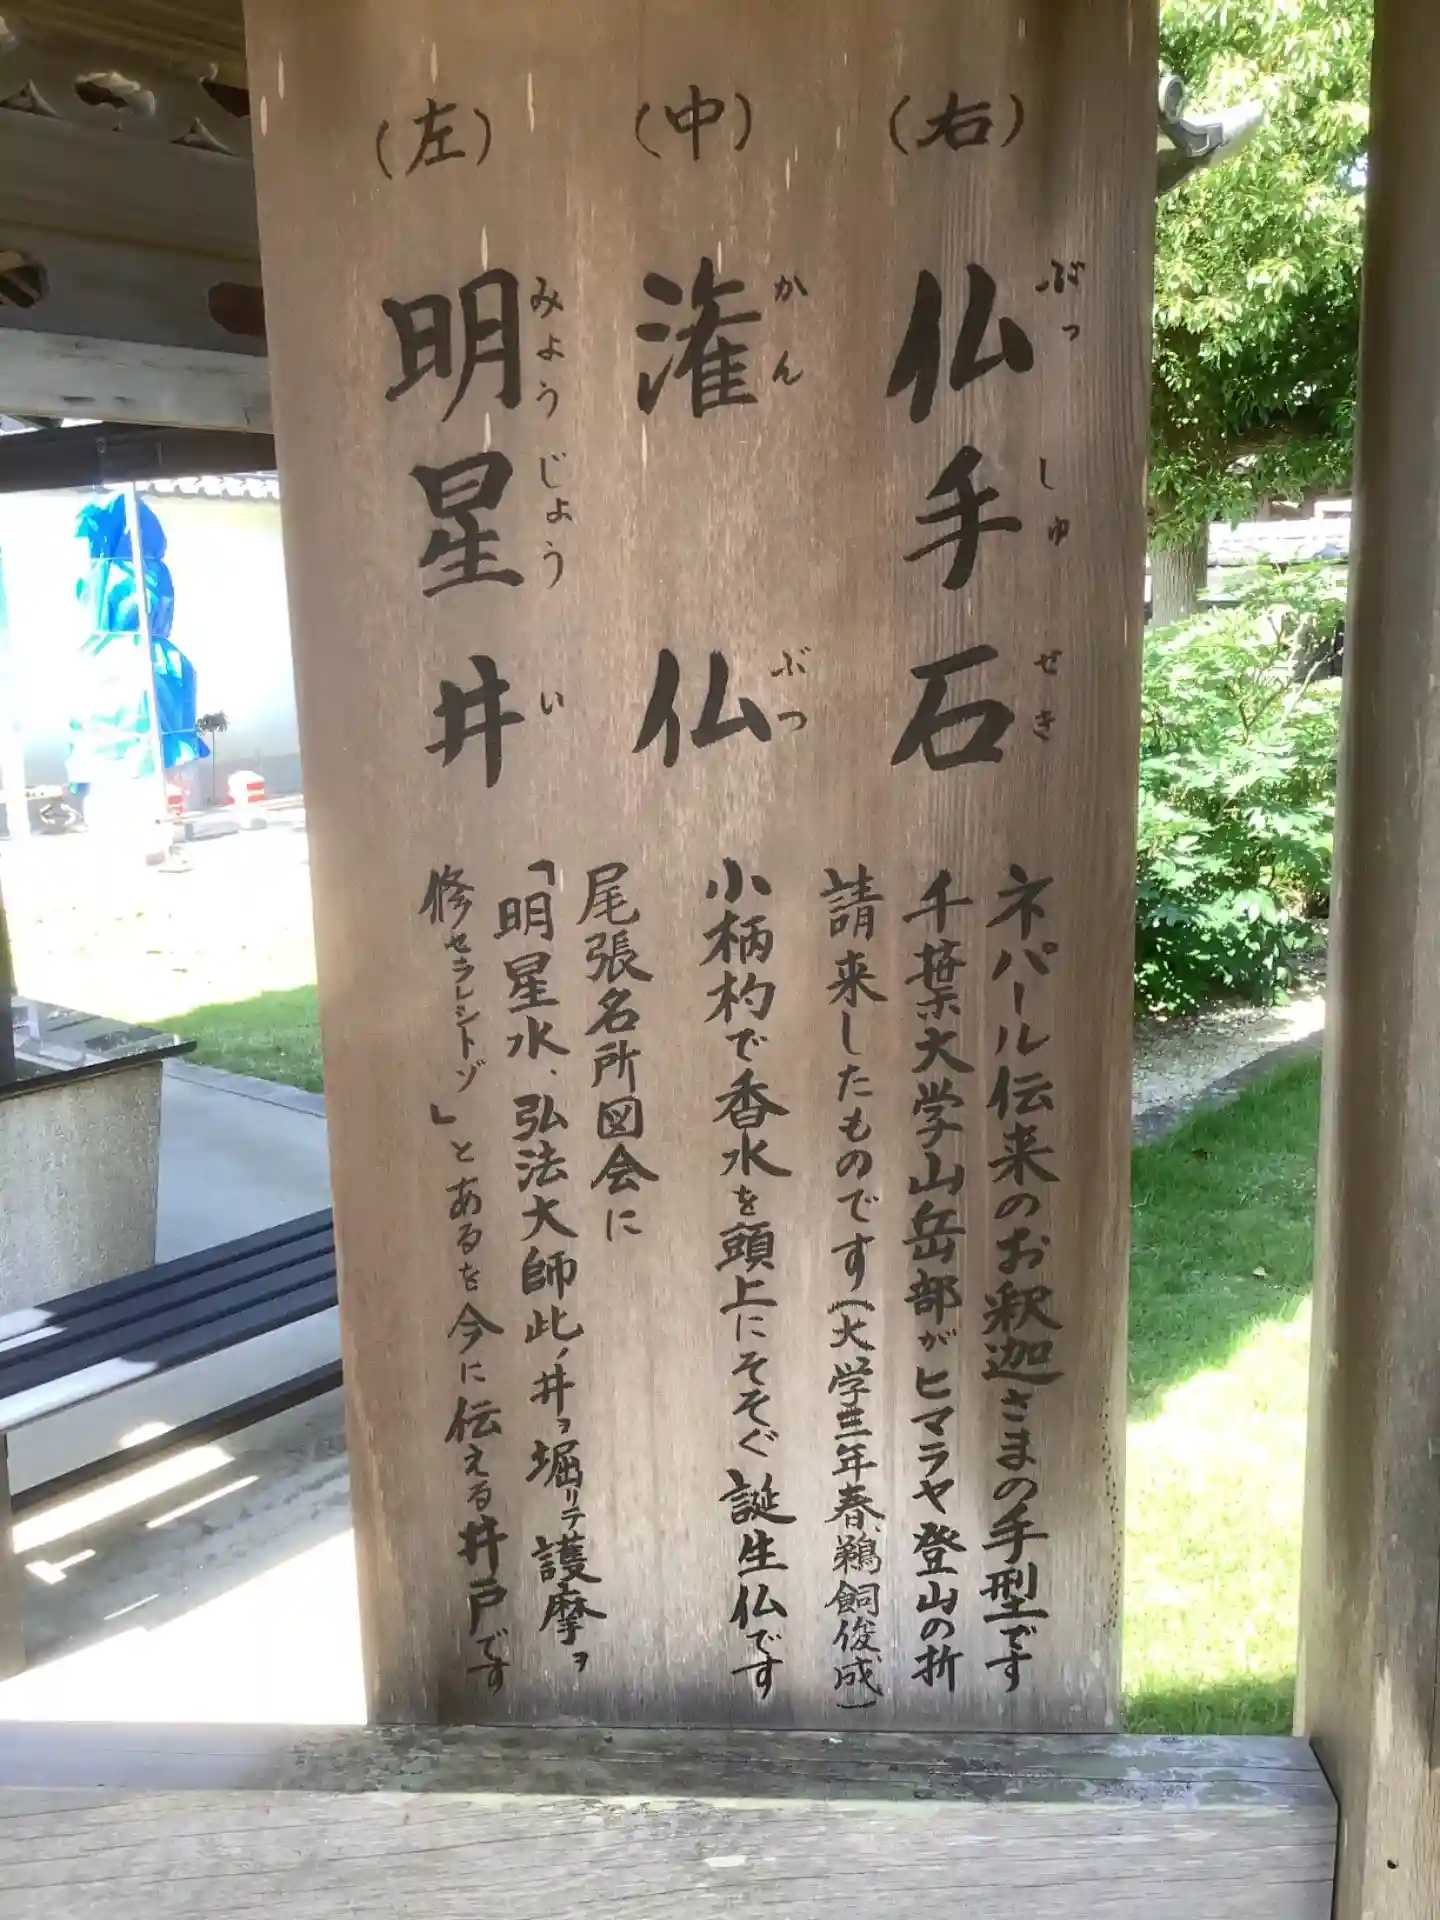 (右)
仏手石
ぶっしゅせき
ネパール伝来のお釈迦さまの手型です
千葉大学山岳部がヒマラヤ登山の折
請来したものです(大学三年春、鵜飼俊成)
(中)
潅仏
かんぶつ
小柄杓で香水を頭上にそそぐ誕生仏です
(左)
明星井
みょうじょうい
尾張名所図会に
「明星水、弘法大師此ノ井ヲ堀リテ護摩ヲ
修セラレシトゾ」とあるを今に伝える井戸です